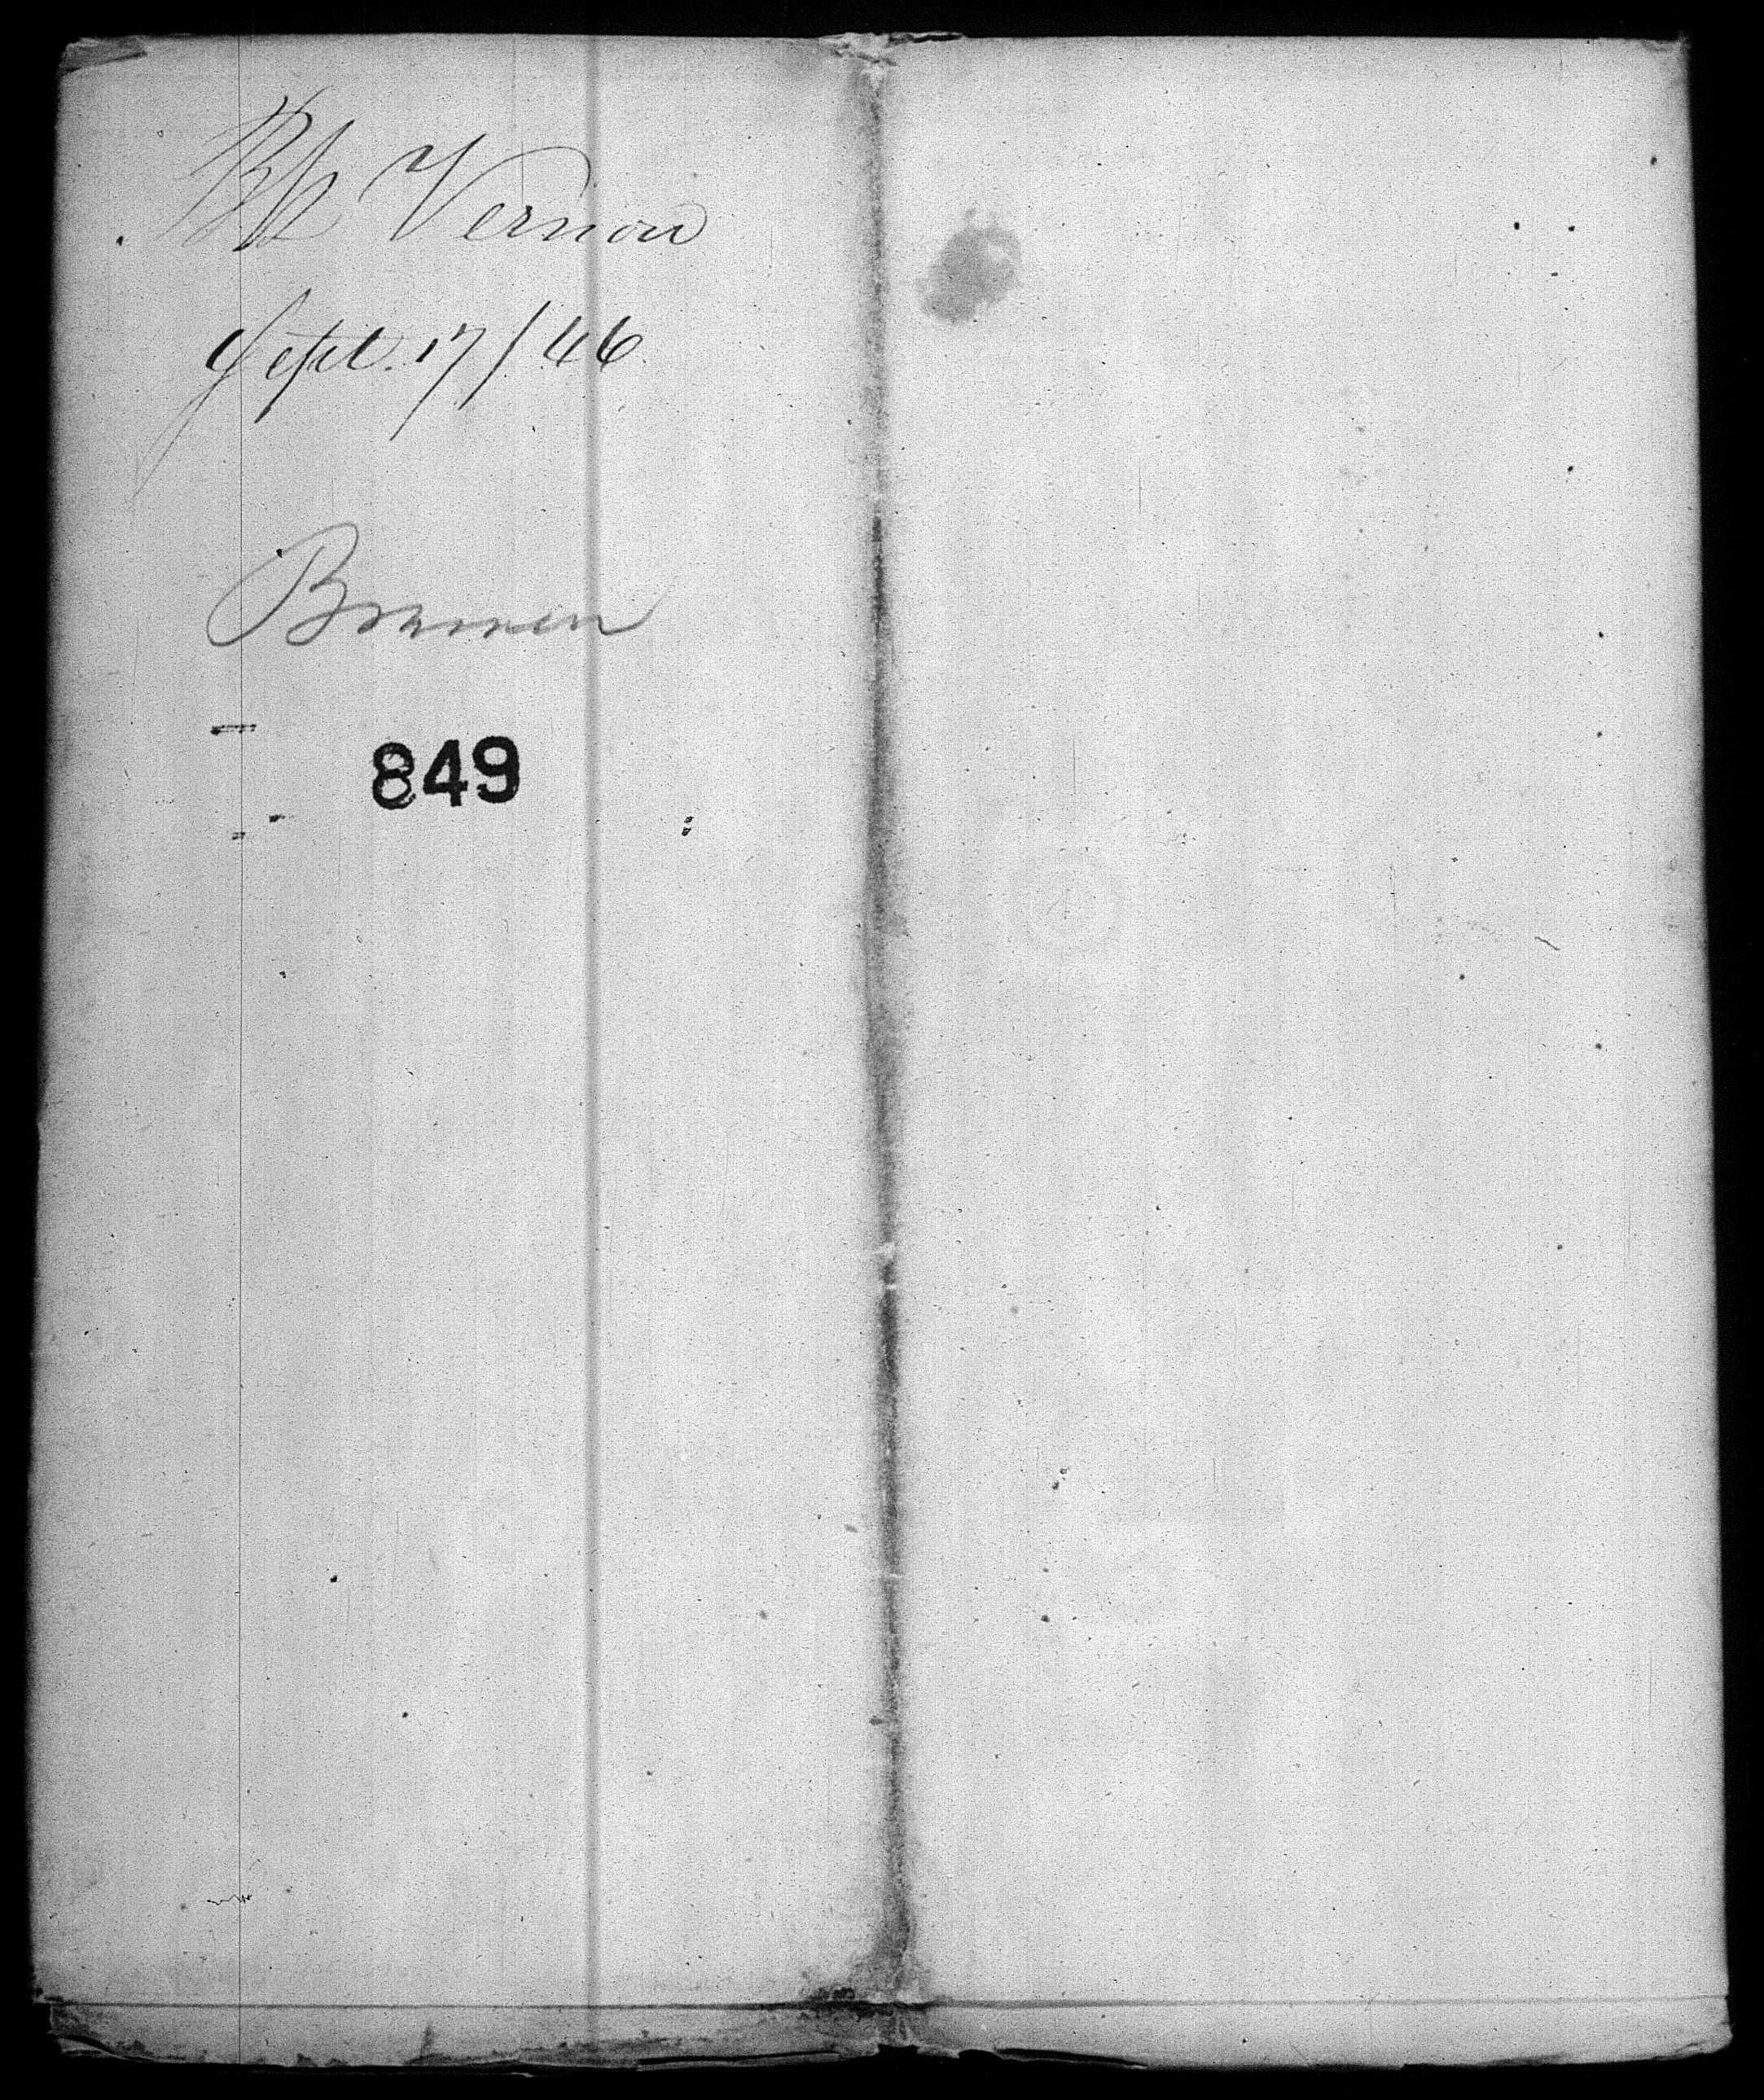 Bk Vernon
Sept. 17/46
Bremen
849